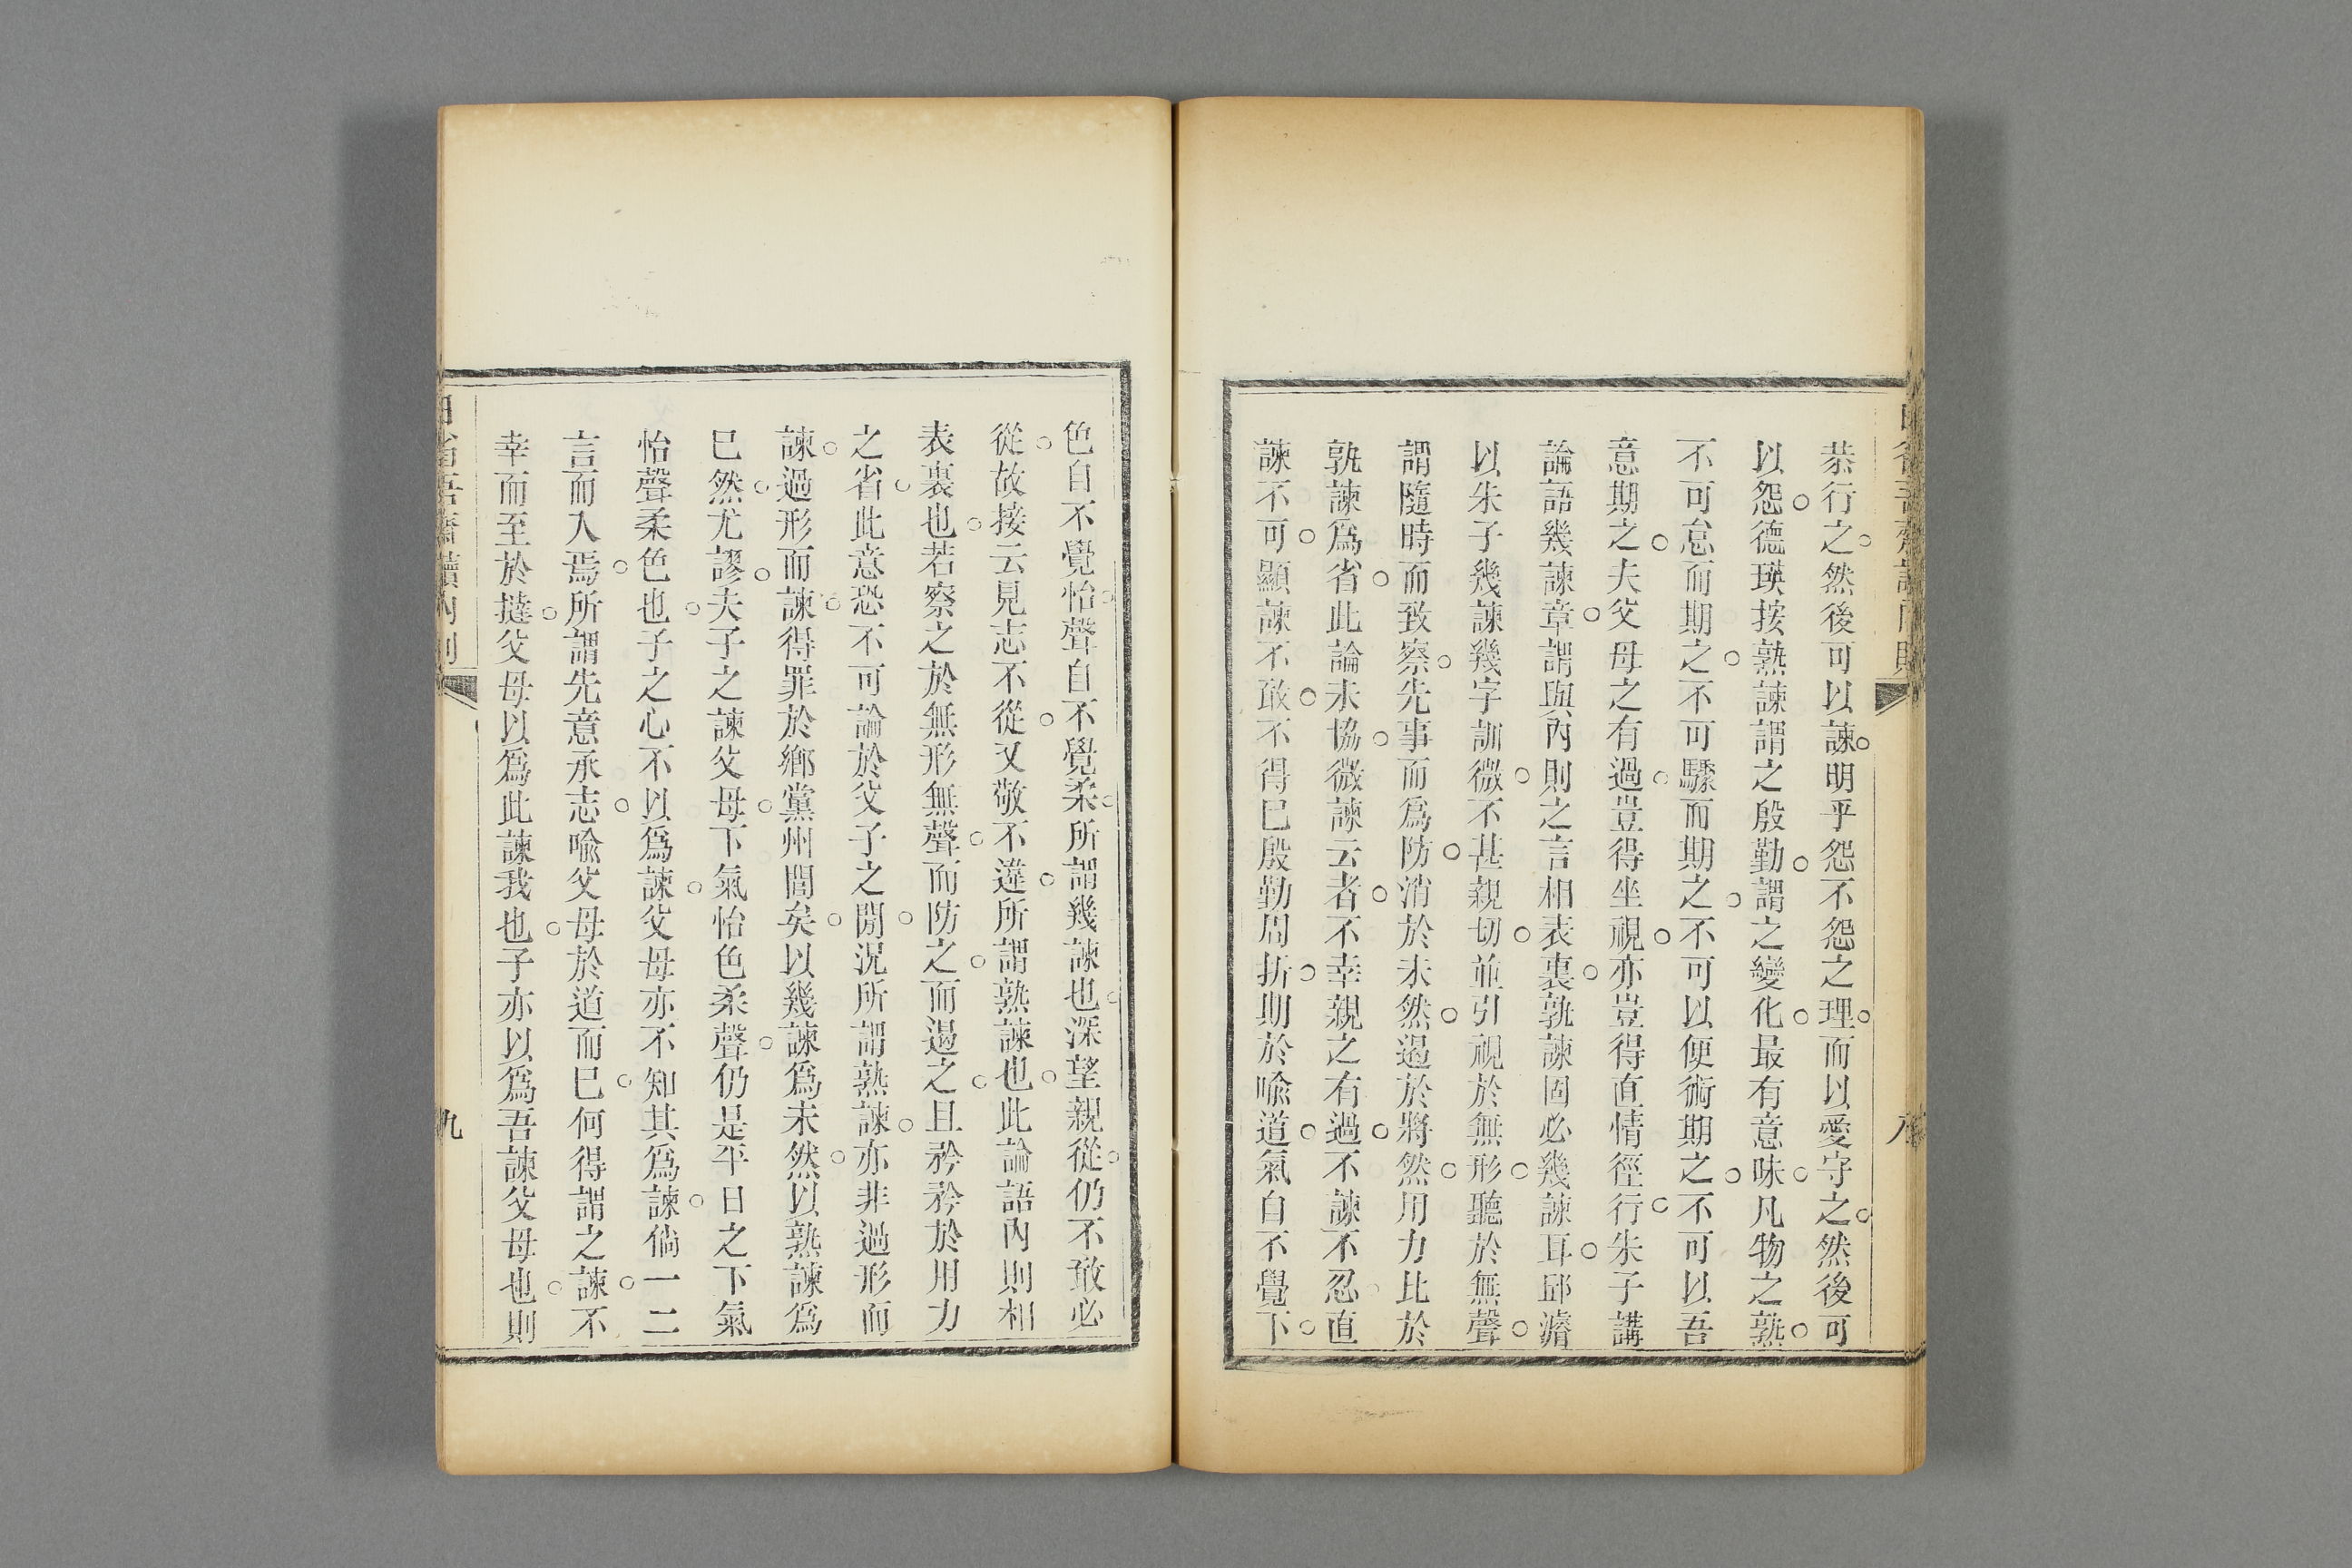 恭行之然後可以諫明乎怨不怨之理而以愛守之然後可
以怨德瑛按孰諫謂之殷勤謂之變化最有意味凡物之孰
不可怠而期之不可驟而期之不可以便術期之不可以吾
意期之夫父母之有過豈得坐視亦豈得直情徑行朱子講
論語幾諫章謂與內則之言相表裏孰諫固必幾諫耳邱濬
以朱子幾諫幾字訓微不甚親切並引視於無形聽於無聲
謂隨時而致察先事而為防消於未然遏於將然用力比於
孰諫為省此論未協微諫云者不幸親之有過不諫不忍直
諫不可顯諫不敢不得已殷勤周折期於喻道氣自不覺下
色自不覺怡聲自不覺柔所謂幾諫也深望親從仍不敢必
從故接云見志不從又敬不違所謂孰諫也此論語內則相
表裏也若察之於無形無聲而防之而遏之且矜矜於用力
之省此意恐不可論於父子之閒況所謂孰諫亦非過形而
諫過形而諫得罪於鄉黨州閭矣以幾諫為未然以孰諫為
已然尤謬夫子之諫父母下氣怡色柔聲仍是平日之下氣
怡聲柔色也子之心不以為諫父母亦不知其為諫倘一二
言而入焉所謂先意承志喻父母於道而已何得謂之諫不
幸而至於撻父母以為此諫我也子亦以為吾諫父母也則
九